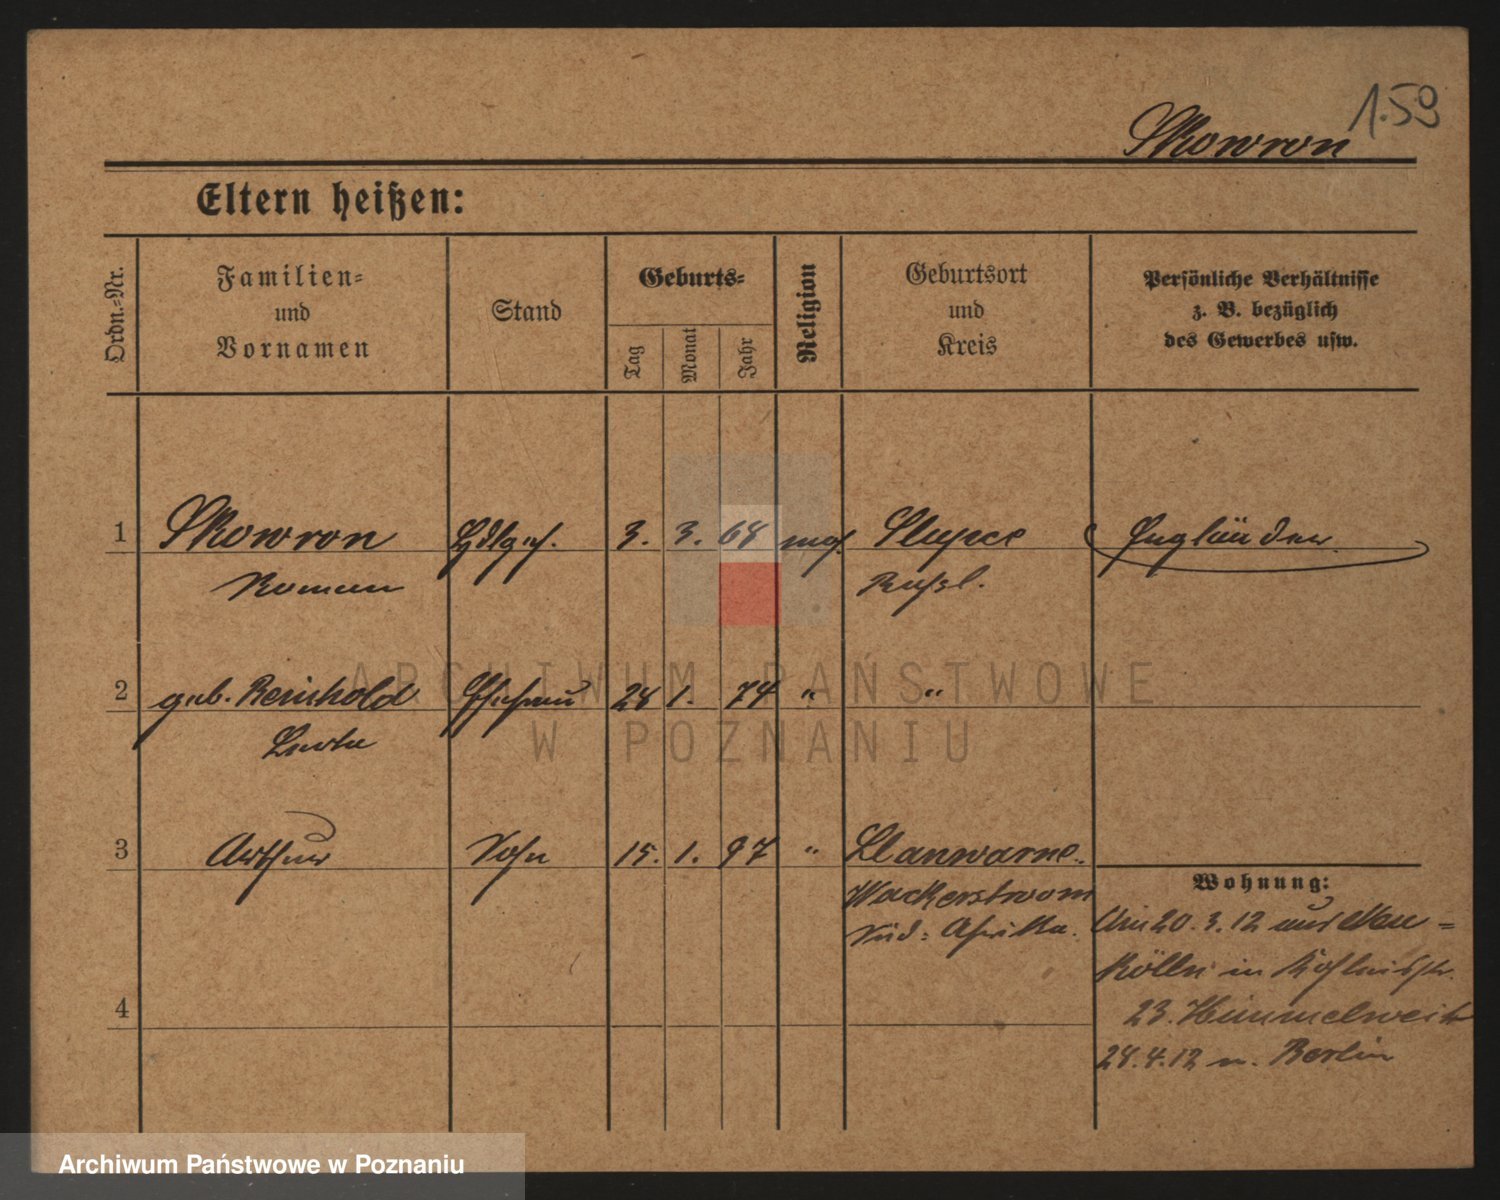 Skowron
1.59
Eltern heißen:
Ordn.-Nr.
Familien-
und
Vornamen
Stand
Geburts-
Tag
Monat
Jahr
Religion
Geburtsort
und
Kreis
Persönliche Verhältnisse
z. B. bezüglich
des Gewerbes usw.
1 Skowron Hdlgeh. 3. 3. 68 mos. Slupce Engländer
Roman Russl.
2 geb. Reinhold Ehefrau 28 1. 74 " "
3 Arthur Sohn 15. 1. 97 " Llanwarne.
Wakkerstroom
Süd-Afrika.
Wohnung:
Am 20.3.12 aus Neu=
kölln in
23. Himmelweit
28.4.12 n. Berlin
4
ARCHIWUM PAŃSTWOWE
W POZNANIU
Archiwum Państwowe w Poznaniu